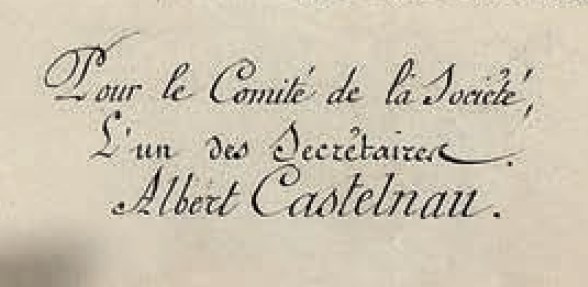 Pour le Comité de la Société,
L'un des Secrétaires.
Albert Castelnau.